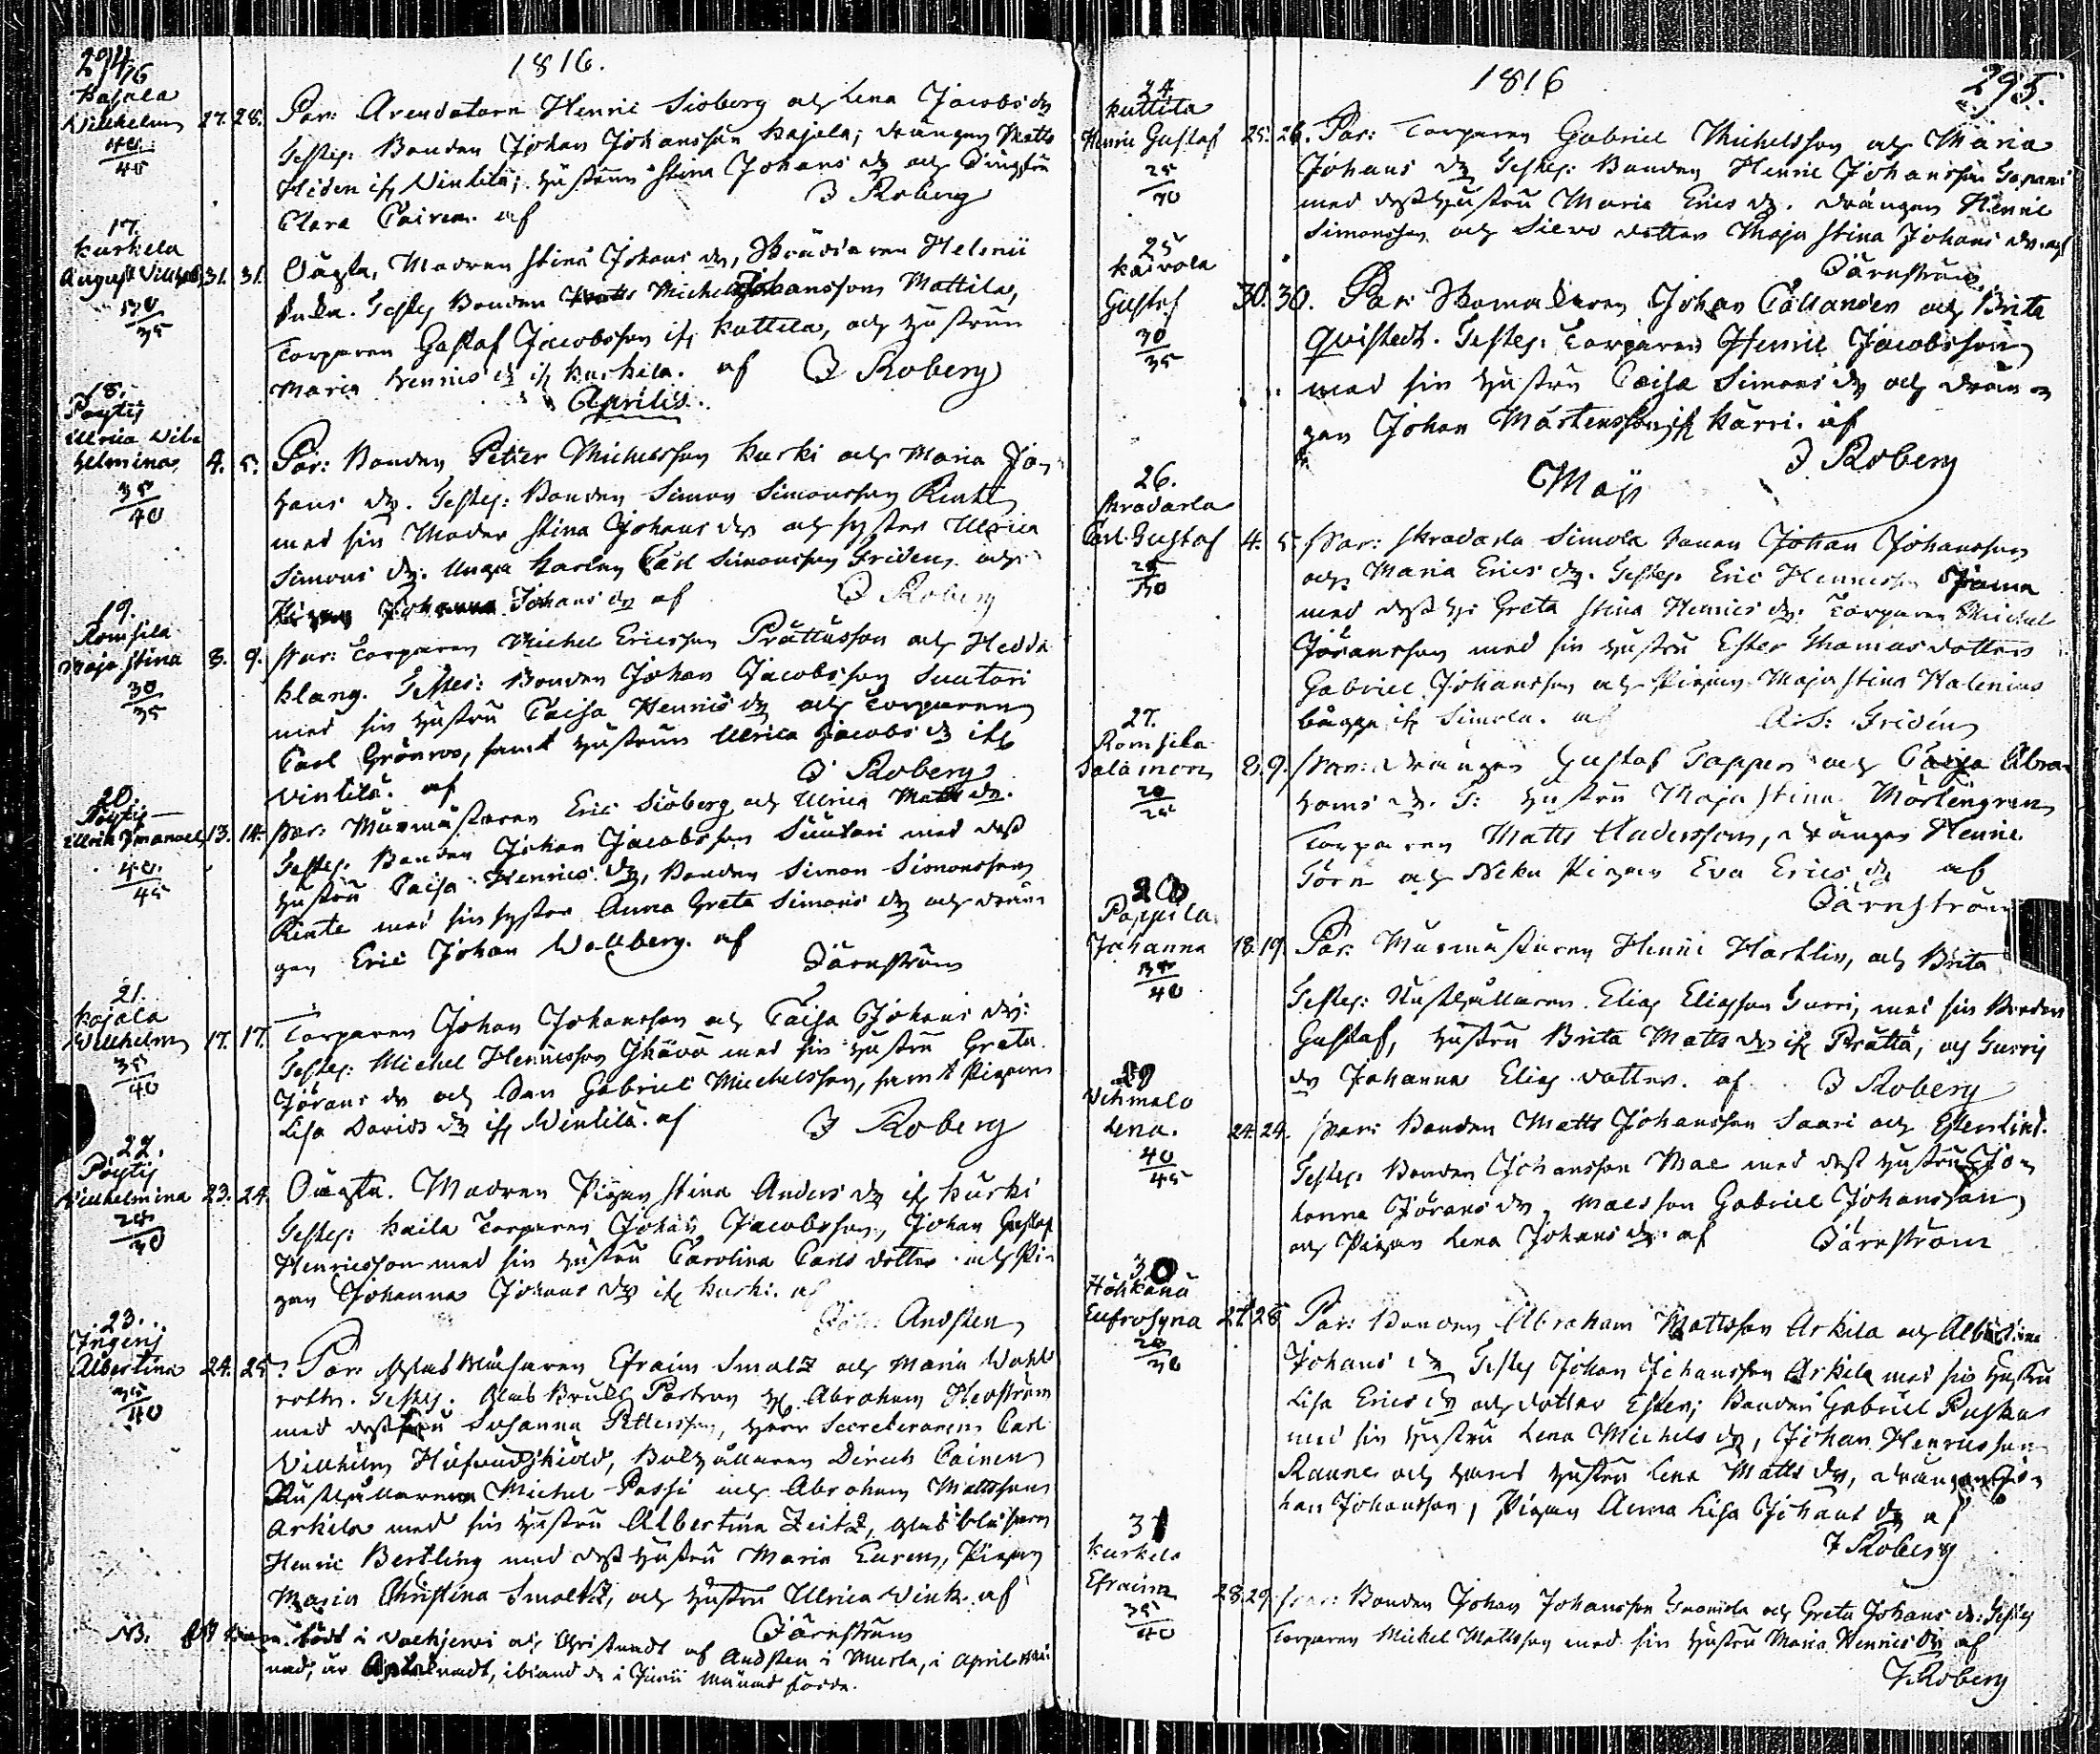 294
1816.
16
Kajala
Willhelm 27. 28. Par: Arendatorn Henric Siöberg och Lena Jacobs dr
40
45
Testes: Bonden Johan Johansson Kajala; drängen Matts
Hiden ifr Vintilä; hustrun Stina Johans dr och
Clara af J Roberg
17.
Kurkela
August 31. 31. Oägta, Modren Stina Johans dr,
30
35
Testes Bonden Michel Johansson Mattila,
Torparen Gustaf Jacobsson ifr Kuttila, och hustrun
Maria Henrics dr ifr Kurkila. af J Roberg
Aprilis.
18.
Pöytis
Ulrica Wil
helmina 4. 5. Par: Bonden Petter Michelsson Kurki och Maria Jo
35
40
hans dr. Testes: Bonden Simon Simonsson
med sin Moder Stina Johans dr och syster Ulrica
Simons dr. Unga Karlen Carl Simonsson Friden, och
Pigan Johanna Johans dr af J Roberg
19.
Romsila
Maja Stina 8. 9. Par: Torparen Michel Ericsson Prättusson och Hedda
30
35
Klang. Testes: Bonden Johan Jacobsson Suutari
med sin hustru Caisa Henrics dr och Torparen
Carl Grönros, samt hustrun Ulrica Jacobs dr ifr
Vintilä. af J Roberg
20.
Pöytis
Ulric Imanuel 13. 14. Par: Murmästaren Eric Siöberg och Ulrica Matts dr.
40
45
Testes: Bonden Johan Jacobsson Suutari med dess
hustru Caisa Henrics dr, Bonden Simon Simonsson
med sin syster Anna Greta Simons dr och drän
gen Eric Johan Wallberg. af
Därnström
21.
Kajala
Willhelm 17. 17. Torparen Johan Johansson och Caisa Johans dr:
35
40
Testes: Michel Henricsson med sin hustru Greta
Jörans dr och Son Gabriel Michelsson, samt Pigan
Lisa Davids dr ifr Wintilä. af J Roberg
22.
Pöytis
Willhelmina 23. 24. Oägta. Modren Pigan Stina Anders dr ifr Kurki
25
30
Testes: Kaila Torparen Johan Jacobsson, Johan Gustaf
Henricsson med sin hustru Carolina Carls dotter och Pi
gan Johanna Johans dr ifr Kurki. af
Andsten
23.
Albertina 24. 25. Par: Glasblåsaren Efraim Smaltz och Maria Wahl
35
40
roth. Testes: Glas Bruks Patron Hr Abraham
med dess fru Susanna Pettersson, Herr Secreteraren Carl
Willhelm
Rusthållaren Michel Passi och Abraham Mattsson
Arkila med sin hustru Albertina Zeitz, glasblåsaren
Henric Bertling med dess hustru Maria Pigan
Maria Christina Smaltz, och hustru Ulrica Wink. af
Därnström
NB. född i och Christnadt af Andsten i i April
nad, är i Junii månad förde.
295.
1816
24.
Kuttila
Henric Gustaf 25. 26. Par: Torparen Gabriel Michelsson och Maria
25
30
Johans dr Testes: Bonden Henric Johansson
med dess hustru Maria Erics dr. drängen Henric
Simonsson och dotter Maja Stina Johans dr. af
Därnström
25
Kaivola
Gustaf 30. 30. Par: Skomakaren Johan och Brita
30
35
Qvistedt. Testes: Torparen Henric Jacobsson
med sin hustru Caisa Simons dr och drän
gen Johan Mårtensson ifr Karri. af
J Roberg
Maji
26.
Skradarla
Carl Gustaf 4. 5. Par: Skradarla Simola Sonen Johan Johansson
25
30
och Maria Erics dr. Testes. Eric Henricsson
med dess h: Greta Stina Henrics dr. Torparen Michel
Jöransson med sin hustru Ester Thomas dotter
Gabriel Johansson och Pigan Maja Stina Halenius
bägge ifr Simola. af Friden
27.
Romsila
Salamon 8. 9. Par: drängen Gustaf Tappen och Caisa Abra
20
25
hams dr. T: hustru Maja Stina Mörtengren
Torparen Matts Andersson, drängen Henric
Törn och Pigan Eva Erics dr af
Därnström
28
Pappila
Johanna 18. 19. Par: Murmästaren Henric Hartlin, och Brita
35
40
Testes: Rusthållaren Elias Eliasson med sin Broder
Gustaf, hustru Brita Matts dr ifr Prättä, och
dr Johanna Elias dotter. af J Roberg
29
Vehmalo
Lena. 24. 24. Par: Bonden Matts Johansson Saari och Ester Lind.
40
45
Testes. Bonden Johansson med dess hustru Jo
hanna Jörans dr, son Gabriel Johansson
och Pigan Lena Johans dr. af Därnström
30
Eufrosyna 27. 28 Par: Bonden Abraham Mattsson Arkila och Albertina
25
30
Johans dr Testes Johan Johansson Arkila med sin hustru
Lisa Erics dr och dotter Ester; Bonden Gabriel
med sin hustru Lena Michels dr, Johan Henricsson
och hans hustru Lena Matts dr, drängen Jo
han Johansson, Pigan Anna Lisa Johans dr af
J Roberg
31
Kurkela
Efraim 28. 29. Par: Bonden Johan Johansson och Greta Johans dr: Testes
35
40
Torparen Michel Mattsson med sin hustru Maria Henrics dr af
J. Roberg